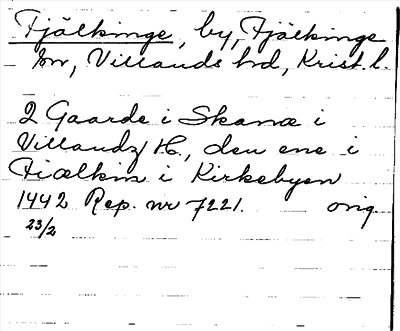 Fjälkinge, by, Fjälkinge
sn, Villands hd, Krist. l.
2 Gaarde i Skanæ i
Villandz H., den ene i
Fiælkin i Kirkebyen
1442 Rep. nr 7221. orig
23/2